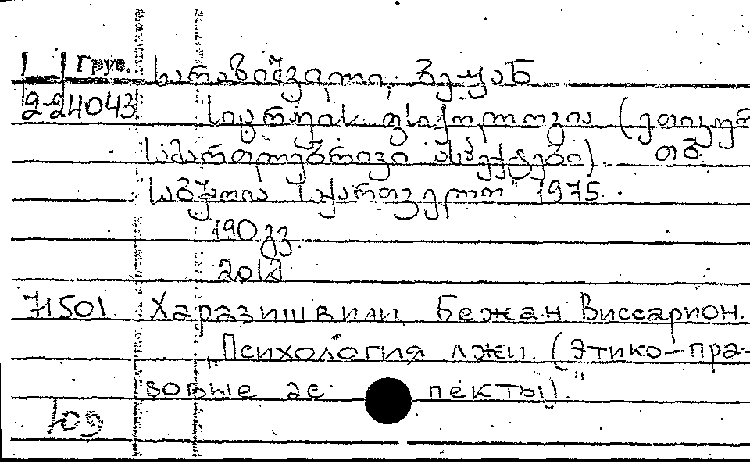 Груз. ხარაზიშვილი, ბეჟან
2-24043 სიცრუის ფსიქოლოგია (ეთიკურ
სამართლებრივი ასპექტები). თბ.
საბჭოთა საქართველო 1975.
190 გვ.
71501. Харазишвили Бежан Виссарион.
"Психология лжи (этико-пра-
вовые ас пекты)."